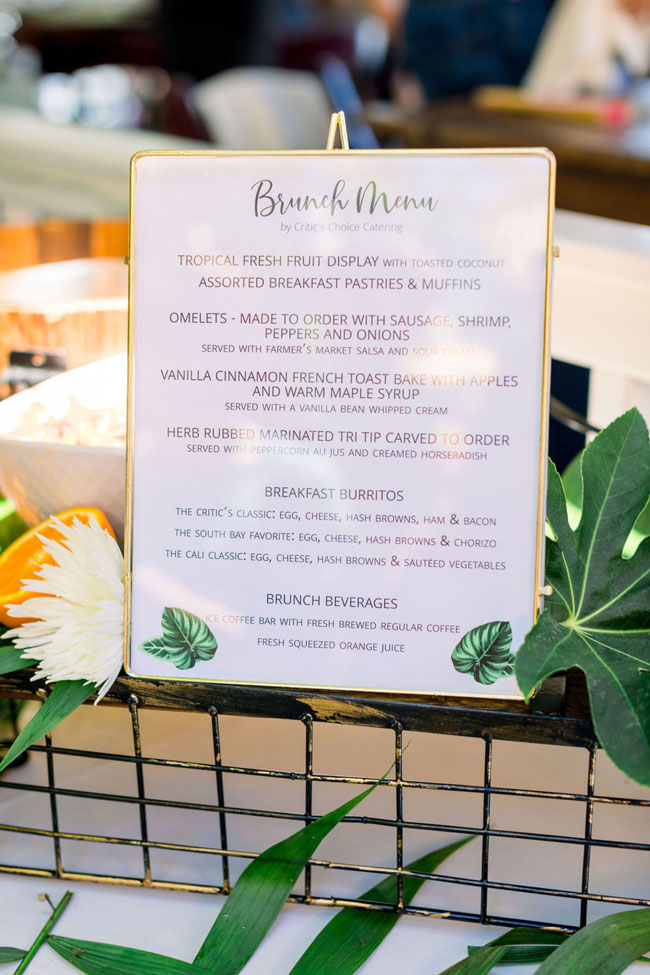 Brunch Menu
by Critic's Choice Catering
TROPICAL FRESH FRUIT DISPLAY WITH TOASTED COCONUT
ASSORTED BREAKFAST PASTRIES & MUFFINS
OMELETS - MADE TO ORDER WITH SAUSAGE, SHRIMP,
PEPPERS AND ONIONS
SERVED WITH FARMER'S MARKET SALSA AND SOUR CREAM
VANILLA CINNAMON FRENCH TOAST BAKE WITH APPLES
AND WARM MAPLE SYRUP
SERVED WITH A VANILLA BEAN WHIPPED CREAM
HERB RUBBED MARINATED TRI TIP CARVED TO ORDER
SERVED WITH PEPPERCORN AU JUS AND CREAMED HORSERADISH
BREAKFAST BURRITOS
THE CRITIC'S CLASSIC: EGG, CHEESE, HASH BROWNS, HAM & BACON
THE SOUTH BAY FAVORITE: EGG, CHEESE, HASH BROWNS & CHORIZO
THE CALI CLASSIC: EGG, CHEESE, HASH BROWNS & SAUTÉED VEGETABLES
BRUNCH BEVERAGES
ICE COFFEE BAR WITH FRESH BREWED REGULAR COFFEE
FRESH SQUEEZED ORANGE JUICE